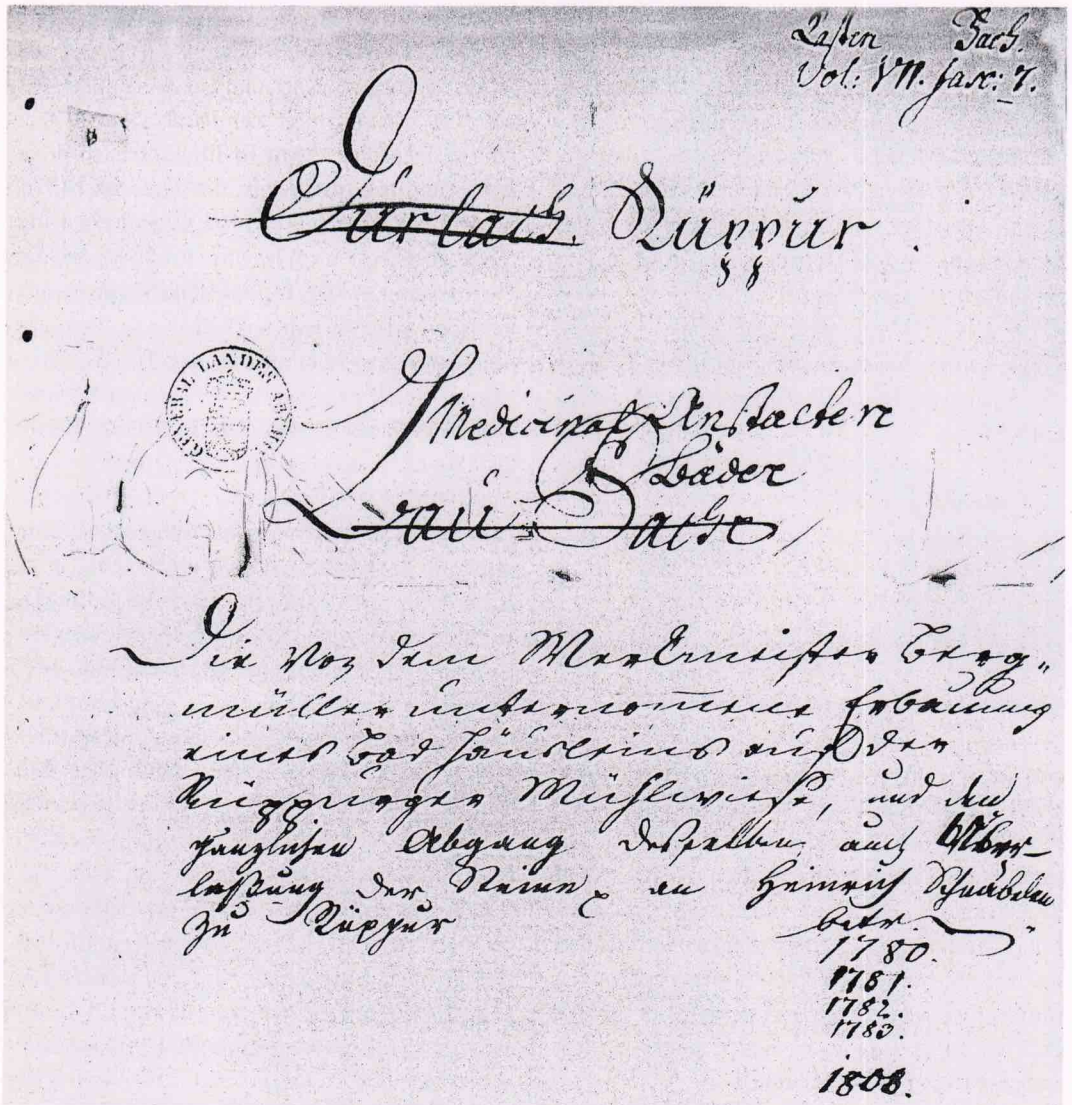 Kasten Fach.
Vol: VII. fasc: 7.
Durlach. Rüppur.
GENERAL LANDES ARCHIV
Medicinal Anstalten
Bäder
Bau-Sache
Die von dem Werkmeister Berg„
müller unternom̅ene Erbauung
eines Bad Häusleins auf der
Rüppurger Mühlwiese, und den
gänzlichen Abgang desselben auch Über-
laßung der Steine, an Heinrich Schnäbelen
zu Rüppur
betr.
1780.
1781.
1782.
1783.
1808.